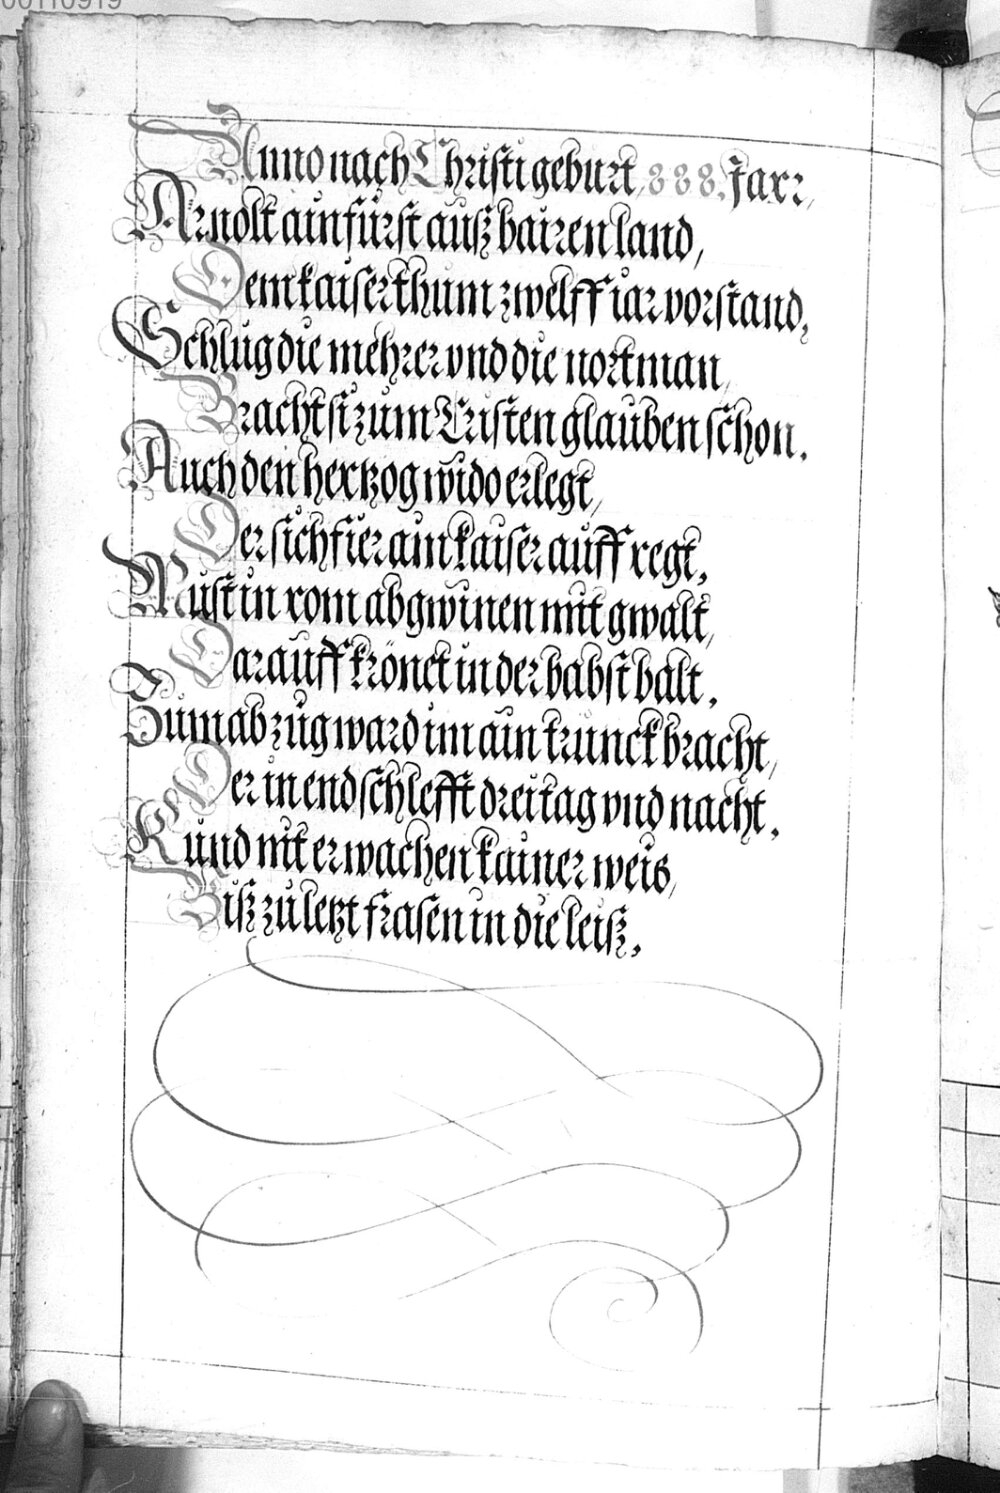 00110919
Anno nach Christi geburt, 888. Jarr,
Arnolt ain fürst auß bairen land,
Dem kaiserthum zwelff iar vorstand,
Schlug die mehrer vnd die nortman,
Bracht si zum Cristen glauben schon.
Auch den hertzog wido erlegt,
Der sich fier ain kaiser auff regt,
Must in rom abgwinen mit gwalt,
Darauff krönet in der babst balt.
Zum abzug ward im ain trunck bracht,
Der in endschlefft drei tag vnd nacht.
Kund nit erwachen kainer weis,
Biß zu letzt frasen in die leiß.